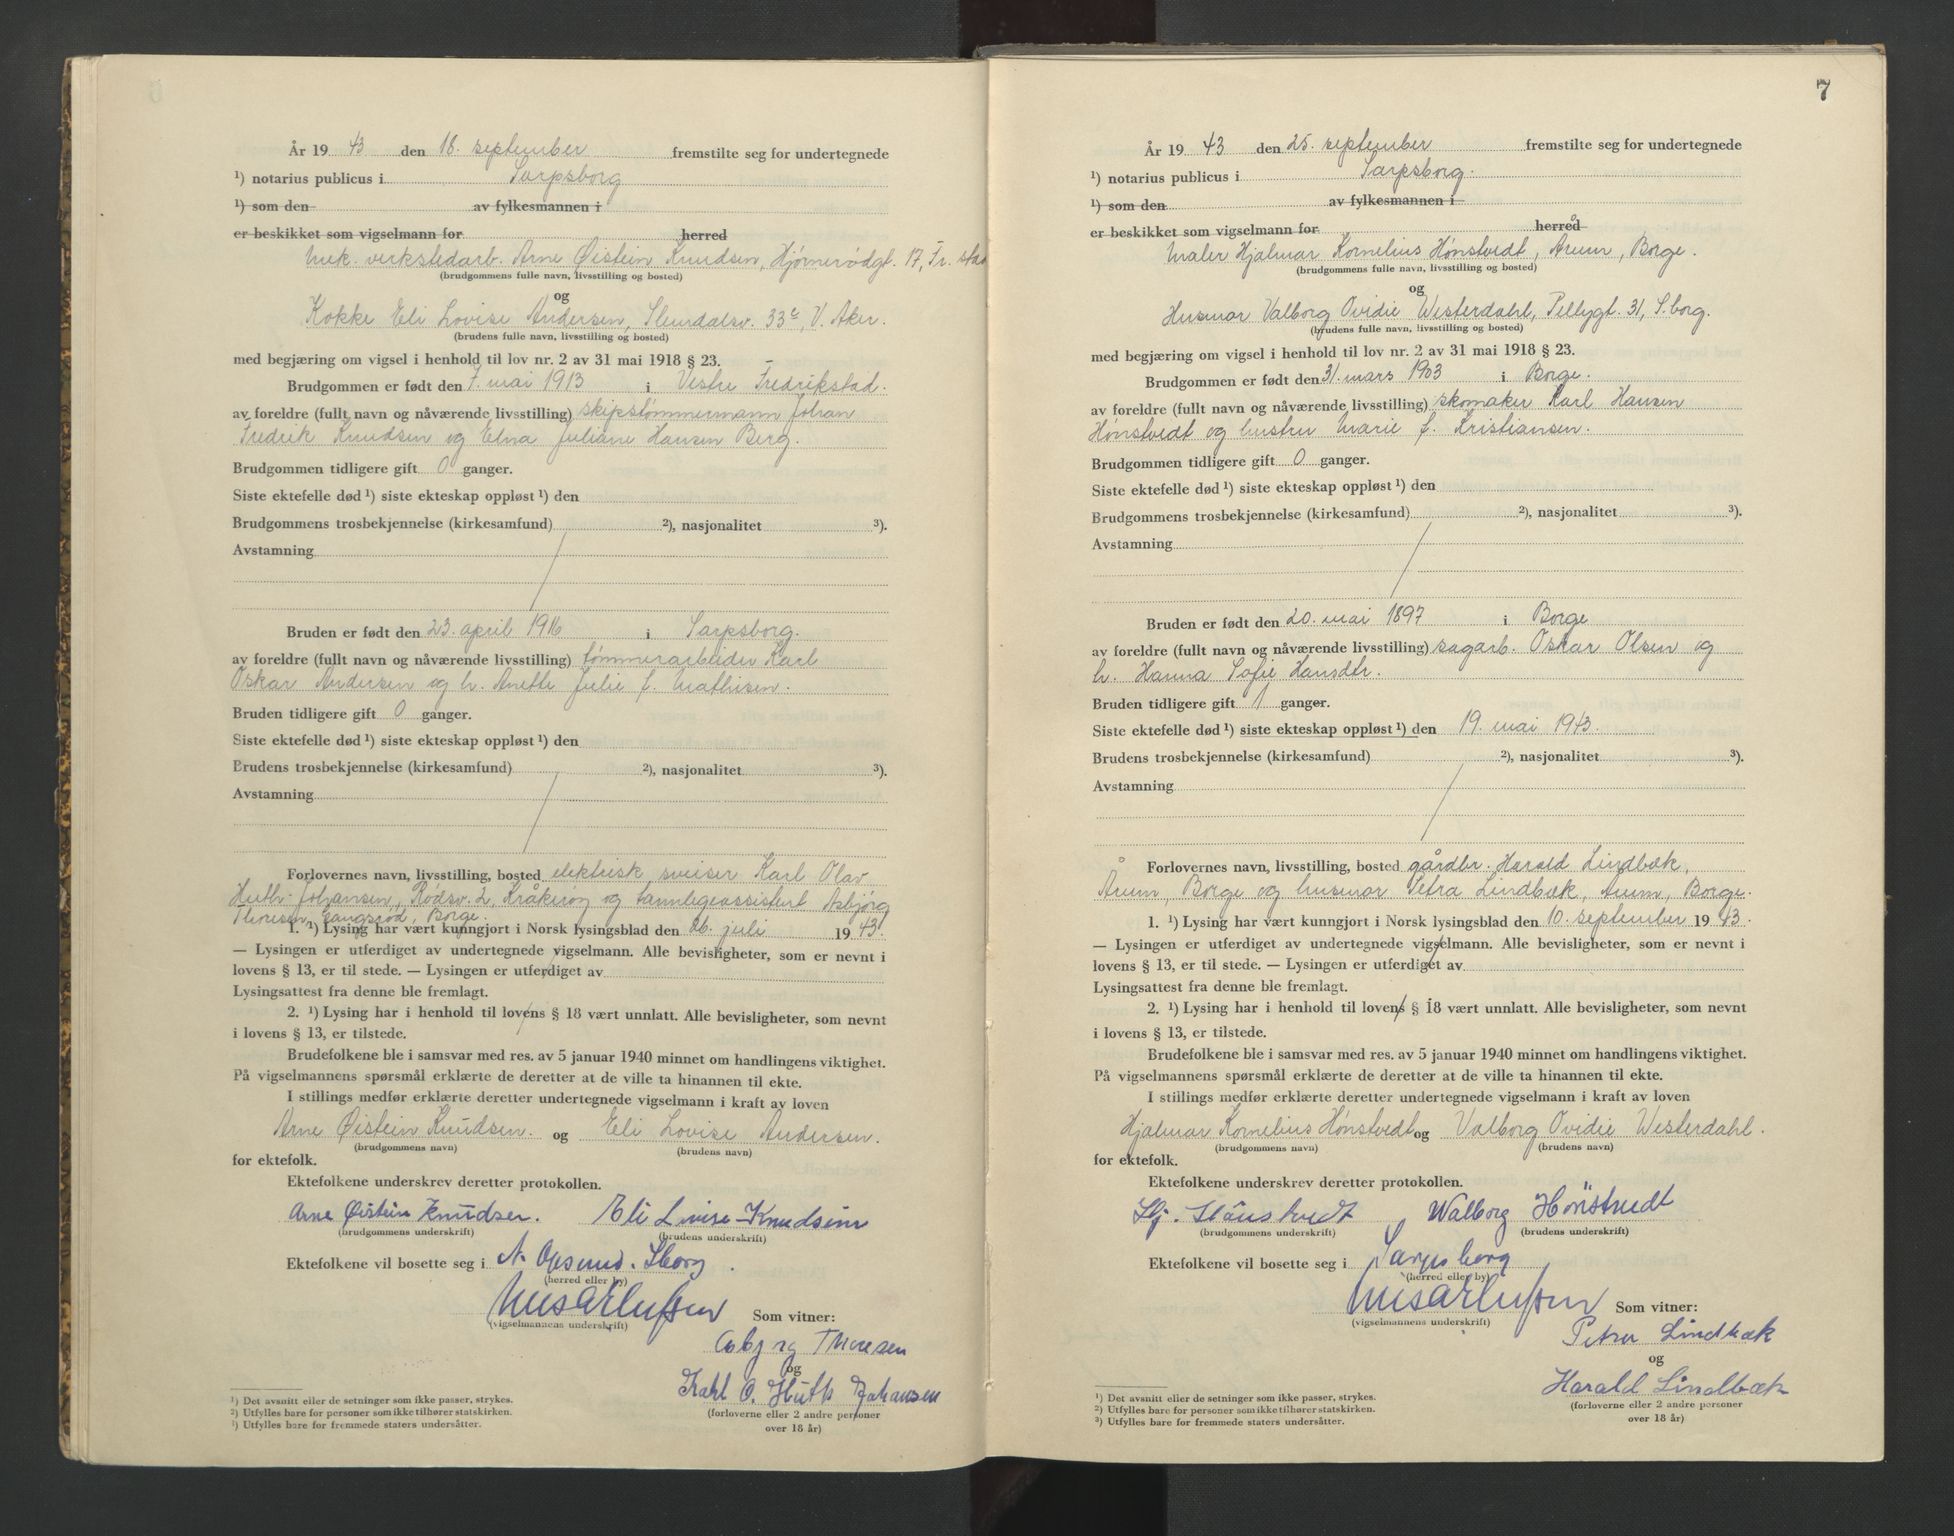 År 19 43 den 18. september fremstilte seg for undertegnede
¹) notarius publicus i Sarpsborg
¹) som den av fylkesmannen i
er beskikket som vigselmann for herred
Mek. verkstedarb. Arne Øistein Knudsen, Hjørnerødgt. 17, Fr. stad
(brudgommens fulle navn, livsstilling og bosted)
og
Kokke Eli Lovise Andersen, Slemdalsv. 33c, V. Aker.
(brudens fulle navn, livsstilling og bosted)
med begjæring om vigsel i henhold til lov nr. 2 av 31 mai 1918 § 23.
Brudgommen er født den 7. mai 1913 i Vestre Fredrikstad.
av foreldre (fullt navn og nåværende livsstilling) skipstømmermann Johan
Fredrik Knudsen og Elna Juliane Hansen Berg.
Brudgommen tidligere gift 0 ganger.
Siste ektefelle død ¹) siste ekteskap oppløst ¹) den
Brudgommens trosbekjennelse (kirkesamfund) ²), nasjonalitet ³).
Avstamning
Bruden er født den 23. april 1916 i Sarpsborg.
av foreldre (fullt navn og nåværende livsstilling) tømmerarbeider Karl
Oskar Andersen og h. Anette Julie f. Mathisen.
Bruden tidligere gift 0 ganger.
Siste ektefelle død ¹) siste ekteskap oppløst ¹) den
Brudens trosbekjennelse (kirkesamfund) ²), nasjonalitet ³).
Avstamning
Forlovernes navn, livsstilling, bosted elektrisk sveiser Karl Olav
Huth-Johansen, Rødsv. 2, Kråkerøy og tannlegeassistent Asbjørg
Thoresen, Langsrød, Borge.
1. ¹) Lysing har vært kunngjort i Norsk lysingsblad den 26. juli 19 43.
— Lysingen er utferdiget av undertegnede vigselmann. Alle bevisligheter, som er nevnt i
lovens § 13, er til stede. — Lysingen er utferdiget av
Lysingsattest fra denne ble fremlagt.
2. ¹) Lysing har i henhold til lovens § 18 vært unnlatt. Alle bevisligheter, som nevnt
i lovens § 13, er tilstede.
Brudefolkene ble i samsvar med res. av 5 januar 1940 minnet om handlingens viktighet.
På vigselmannens spørsmål erklærte de deretter at de ville ta hinannen til ekte.
I stillings medfør erklærte deretter undertegnede vigselmann i kraft av loven
Arne Øistein Knudsen. og Eli Lovise Andersen.
(brudgommens navn) (brudens navn)
for ektefolk.
Ektefolkene underskrev deretter protokollen.
Arne Øistein Knudsen. Eli Lovise Knudsen
(brudgommens underskrift) (brudens underskrift)
Ektefolkene vil bosette seg i N. Opsund. Sborg.
(herred eller by)
Som vitner:
(vigselmannens underskrift)
Asbjørg Thoresen
og
Karl O. Huth Johansen
(forloverne eller 2 andre personer
over 18 år)
¹) Det avsnitt eller de setninger som ikke passer, strykes.
²) Utfylles bare for personer som ikke tilhører statskirken.
³) Utfylles bare for fremmede staters undersåtter.
7
År 19 43 den 25. september fremstilte seg for undertegnede
¹) notarius publicus i Sarpsborg.
¹) som den av fylkesmannen i
er beskikket som vigselmann for herred
Maler Hjalmar Kornelius Hønstvedt, Årum, Borge.
(brudgommens fulle navn, livsstilling og bosted)
og
Husmor Valborg Ovidie Westerdahl, Pellygt. 31, S.borg.
(brudens fulle navn, livsstilling og bosted)
med begjæring om vigsel i henhold til lov nr. 2 av 31 mai 1918 § 23.
Brudgommen er født den 31. mars 1903 i Borge.
av foreldre (fullt navn og nåværende livsstilling) skomaker Karl Hansen
Hønstvedt og hustru Marie f. Kristiansen.
Brudgommen tidligere gift 0 ganger.
Siste ektefelle død ¹) siste ekteskap oppløst ¹) den
Brudgommens trosbekjennelse (kirkesamfund) ²), nasjonalitet ³).
Avstamning
Bruden er født den 20. mai 1897 i Borge
av foreldre (fullt navn og nåværende livsstilling) sagarb. Oskar Olsen og
h. Hanna Sofie Hansdtr.
Bruden tidligere gift 1 ganger.
Siste ektefelle død ¹) siste ekteskap oppløst ¹) den 19. mai 1943.
Brudens trosbekjennelse (kirkesamfund) ²), nasjonalitet ³).
Avstamning
Forlovernes navn, livsstilling, bosted gårdbr. Harald Lindbæk,
Årum, Borge og husmor Petra Lindbæk, Årum, Borge.
1. ¹) Lysing har vært kunngjort i Norsk lysingsblad den 10. september 19 43.
— Lysingen er utferdiget av undertegnede vigselmann. Alle bevisligheter, som er nevnt i
lovens § 13, er til stede. — Lysingen er utferdiget av
Lysingsattest fra denne ble fremlagt.
2. ¹) Lysing har i henhold til lovens § 18 vært unnlatt. Alle bevisligheter, som nevnt
i lovens § 13, er tilstede.
Brudefolkene ble i samsvar med res. av 5 januar 1940 minnet om handlingens viktighet.
På vigselmannens spørsmål erklærte de deretter at de ville ta hinannen til ekte.
I stillings medfør erklærte deretter undertegnede vigselmann i kraft av loven
Hjalmar Kornelius Hønstvedt og Valborg Ovidie Westerdahl.
(brudgommens navn) (brudens navn)
for ektefolk.
Ektefolkene underskrev deretter protokollen.
Hj. Hönstvedt Walborg Hönstvedt
(brudgommens underskrift) (brudens underskrift)
Ektefolkene vil bosette seg i Sarpsborg
(herred eller by)
Som vitner:
(vigselmannens underskrift)
Petra Lindbæk
og
Harald Lindbæk
(forloverne eller 2 andre personer
over 18 år)
¹) Det avsnitt eller de setninger som ikke passer, strykes.
²) Utfylles bare for personer som ikke tilhører statskirken.
³) Utfylles bare for fremmede staters undersåtter.